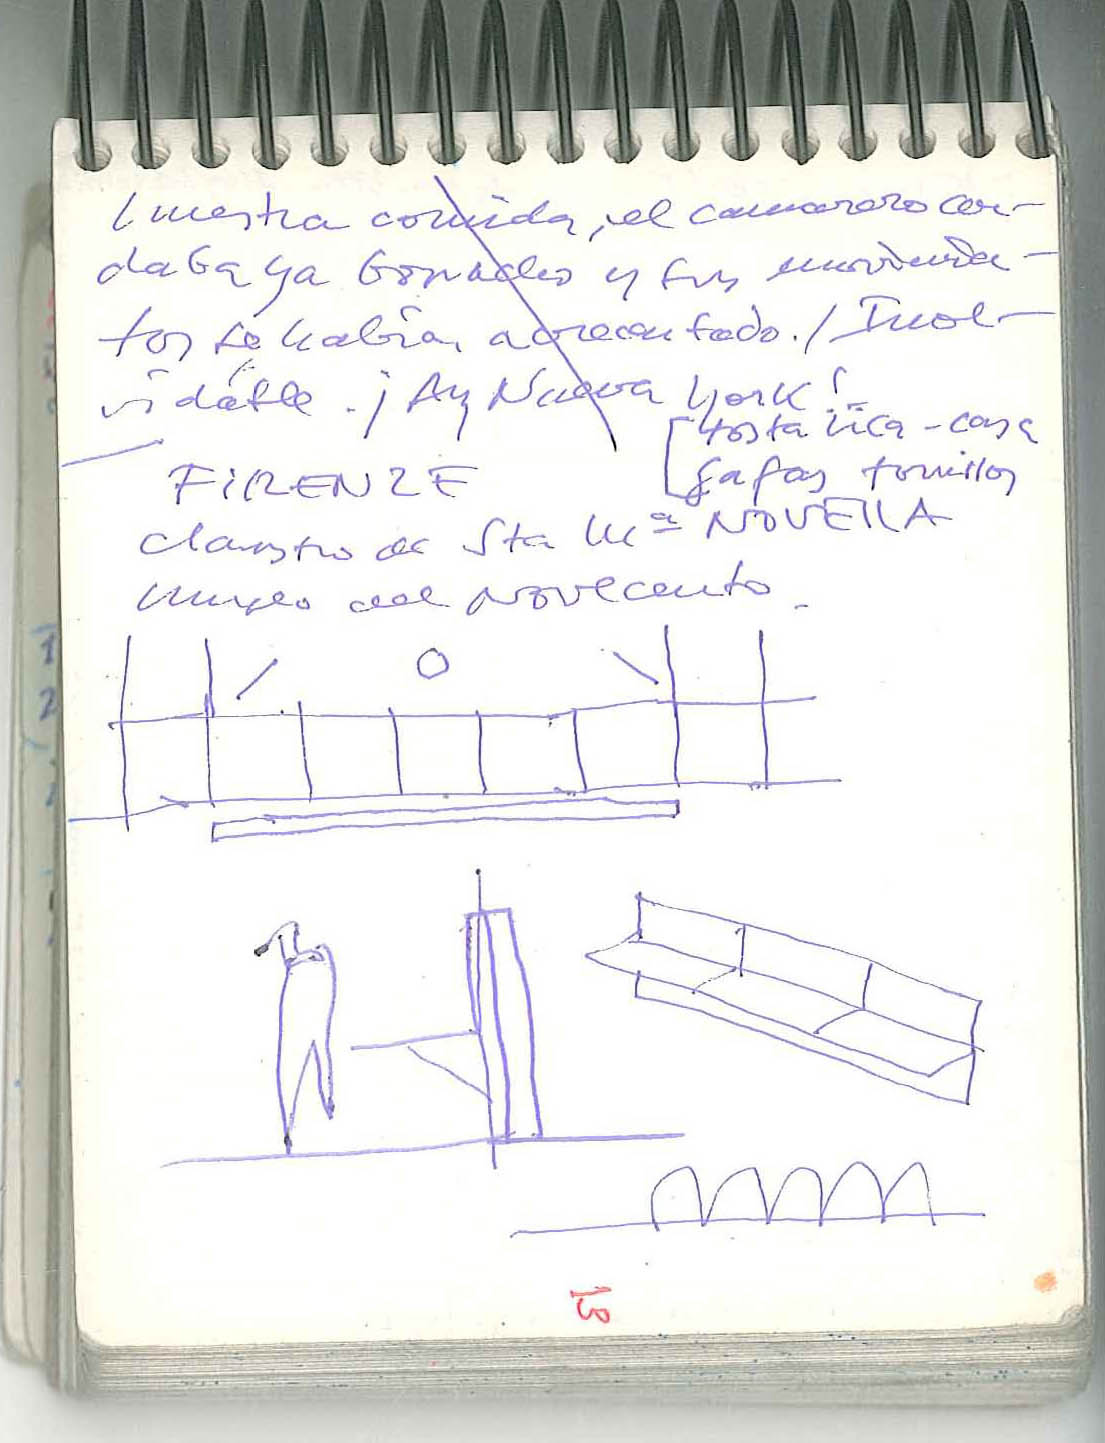 nuestra comida, el camarero an-
daba ya borracho y sus movimien-
tos se habían acrecentado. / Inol-
vidable. ¡Ay Nueva York!
gafas tornillos
FIRENZE
claustro de Sta Mª NOVELLA
Museo del Novecento.
13